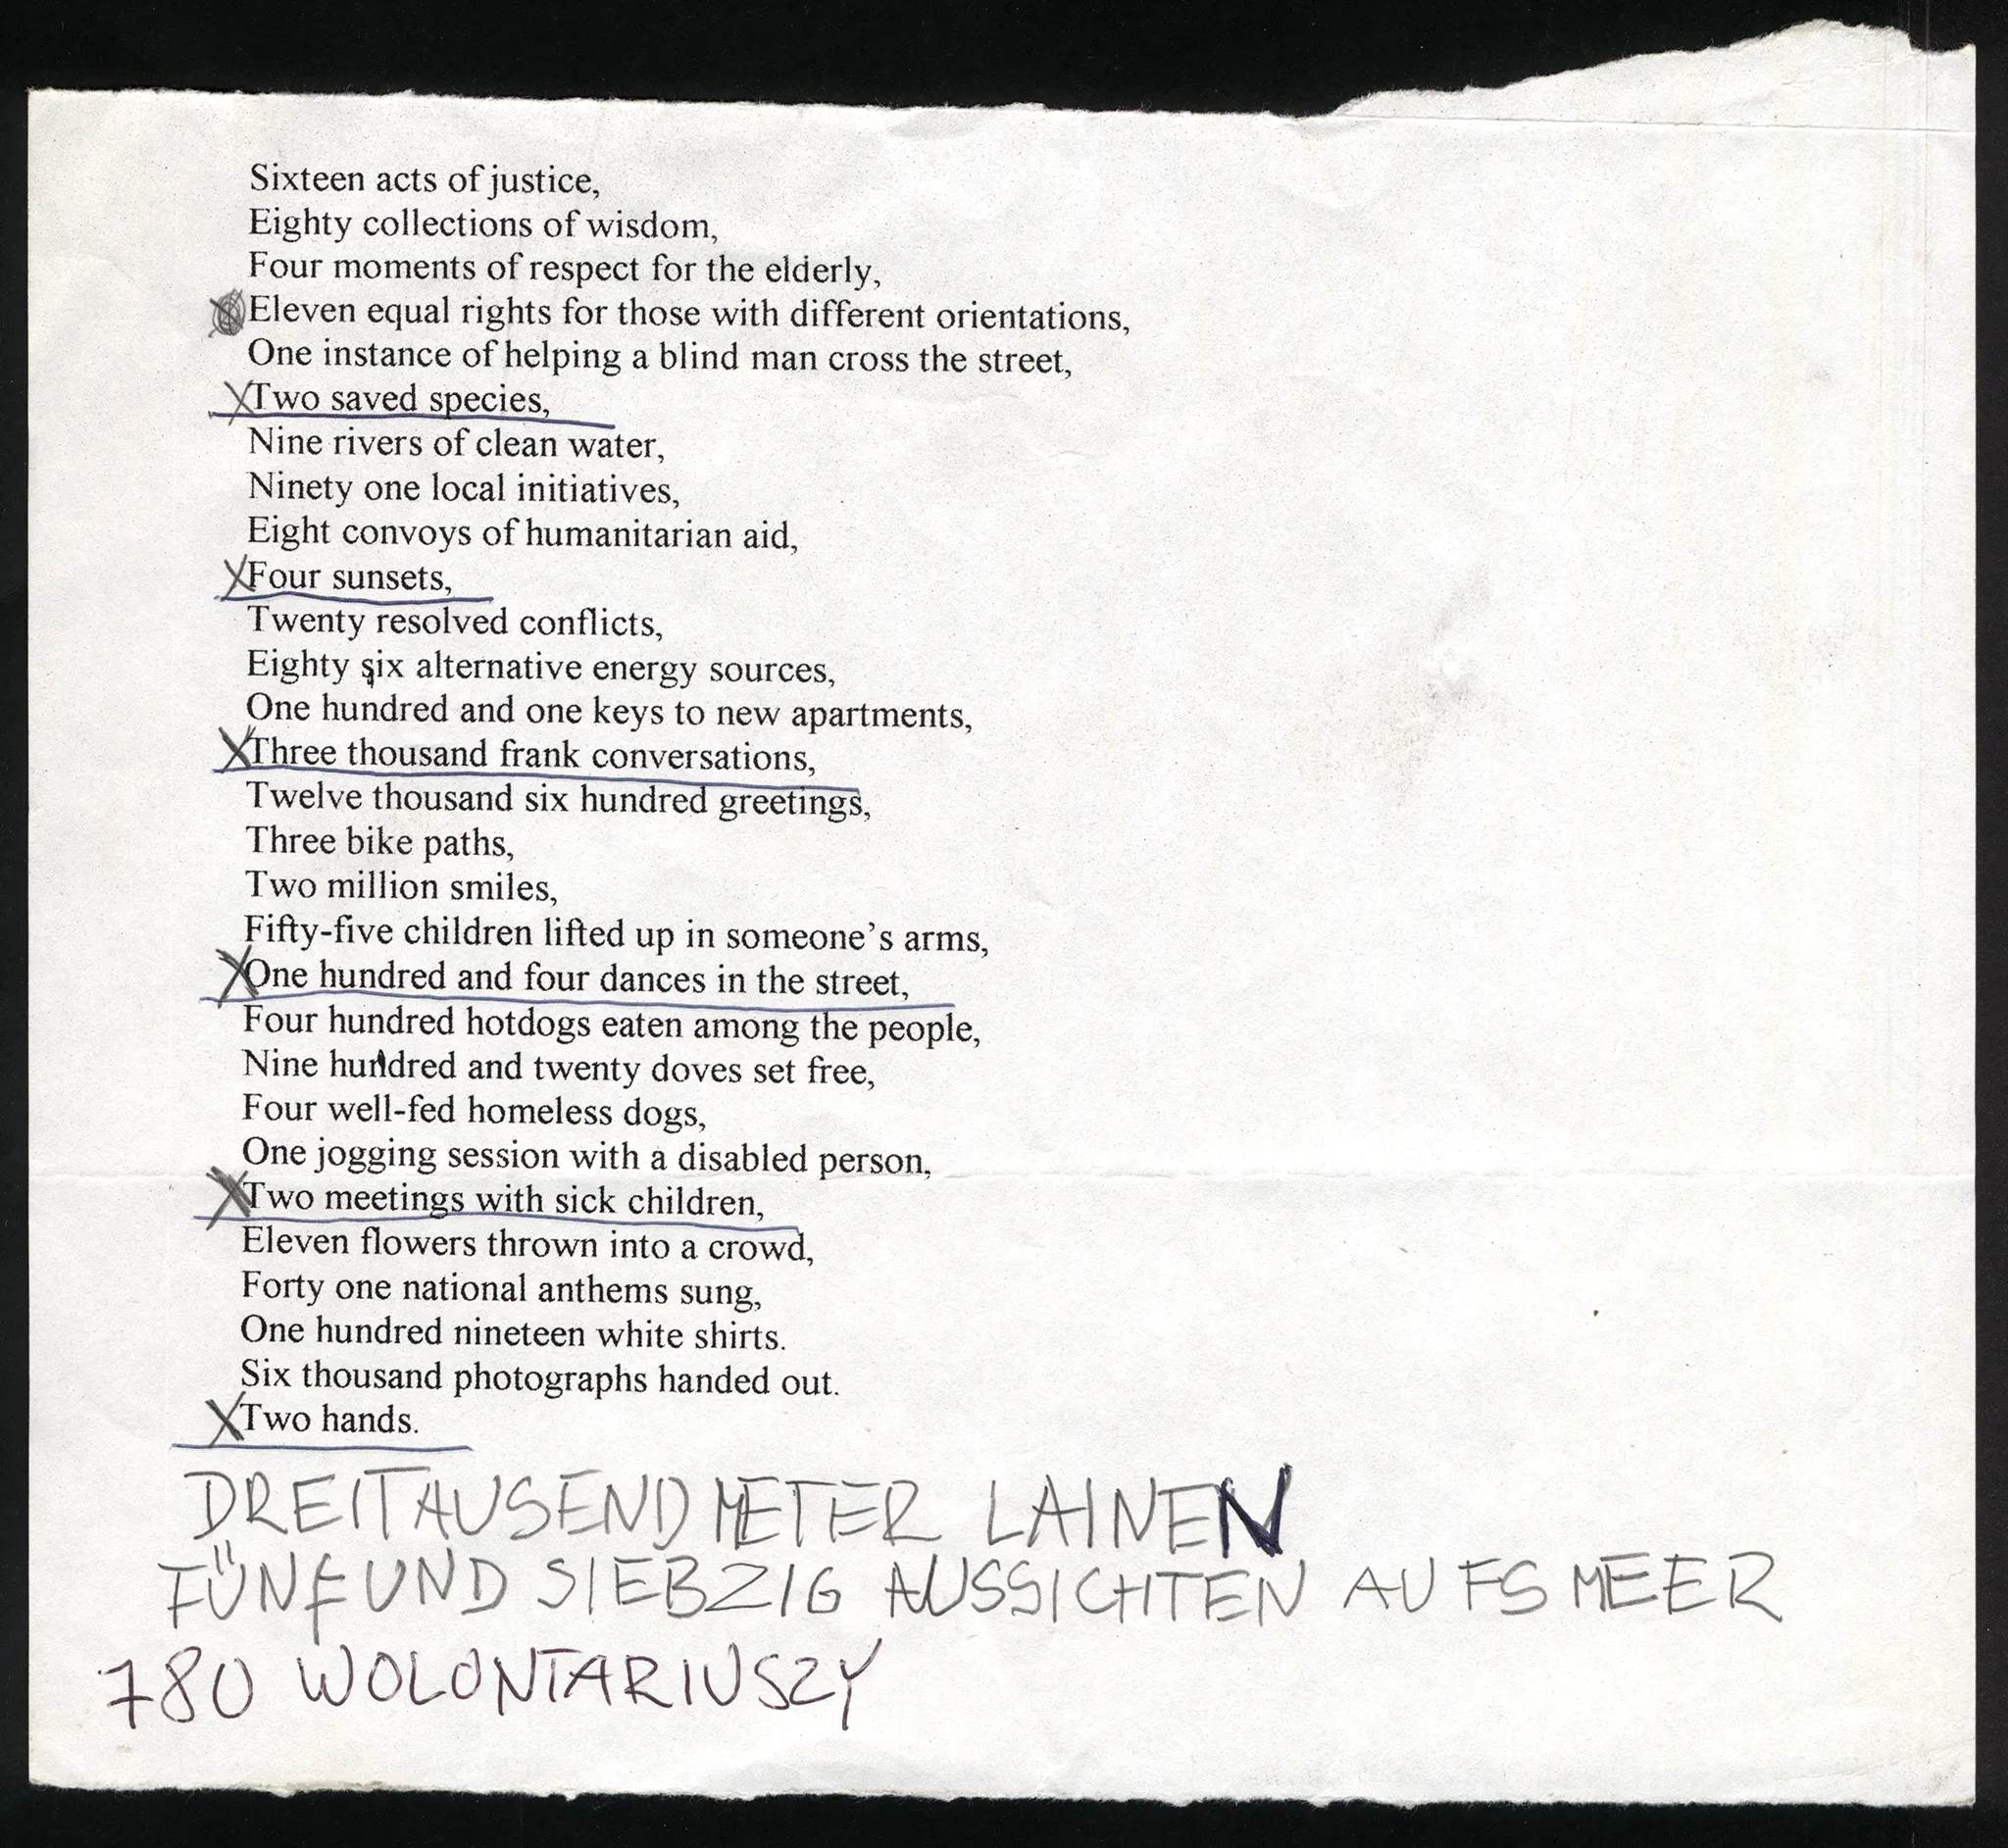 Sixteen acts of justice,
Eighty collections of wisdom,
Four moments of respect for the elderly,
Eleven equal rights for those with different orientations,
One instance of helping a blind man cross the street,
XTwo saved species,
Nine rivers of clean water,
Ninety one local initiatives,
Eight convoys of humanitarian aid,
XFour sunsets,
Twenty resolved conflicts,
Eighty six alternative energy sources,
One hundred and one keys to new apartments,
XThree thousand frank conversations,
Twelve thousand six hundred greetings,
Three bike paths,
Two million smiles,
Fifty-five children lifted up in someone’s arms,
XOne hundred and four dances in the street,
Four hundred hotdogs eaten among the people,
Nine hundred and twenty doves set free,
Four well-fed homeless dogs,
One jogging session with a disabled person,
XTwo meetings with sick children,
Eleven flowers thrown into a crowd,
Forty one national anthems sung,
One hundred nineteen white shirts.
Six thousand photographs handed out.
XTwo hands.
DREITAUSEND METER LAINEN
FÜNFUND SIEBZIG AUSSICHTEN AUFS MEER
780 WOLONTARIUSZY